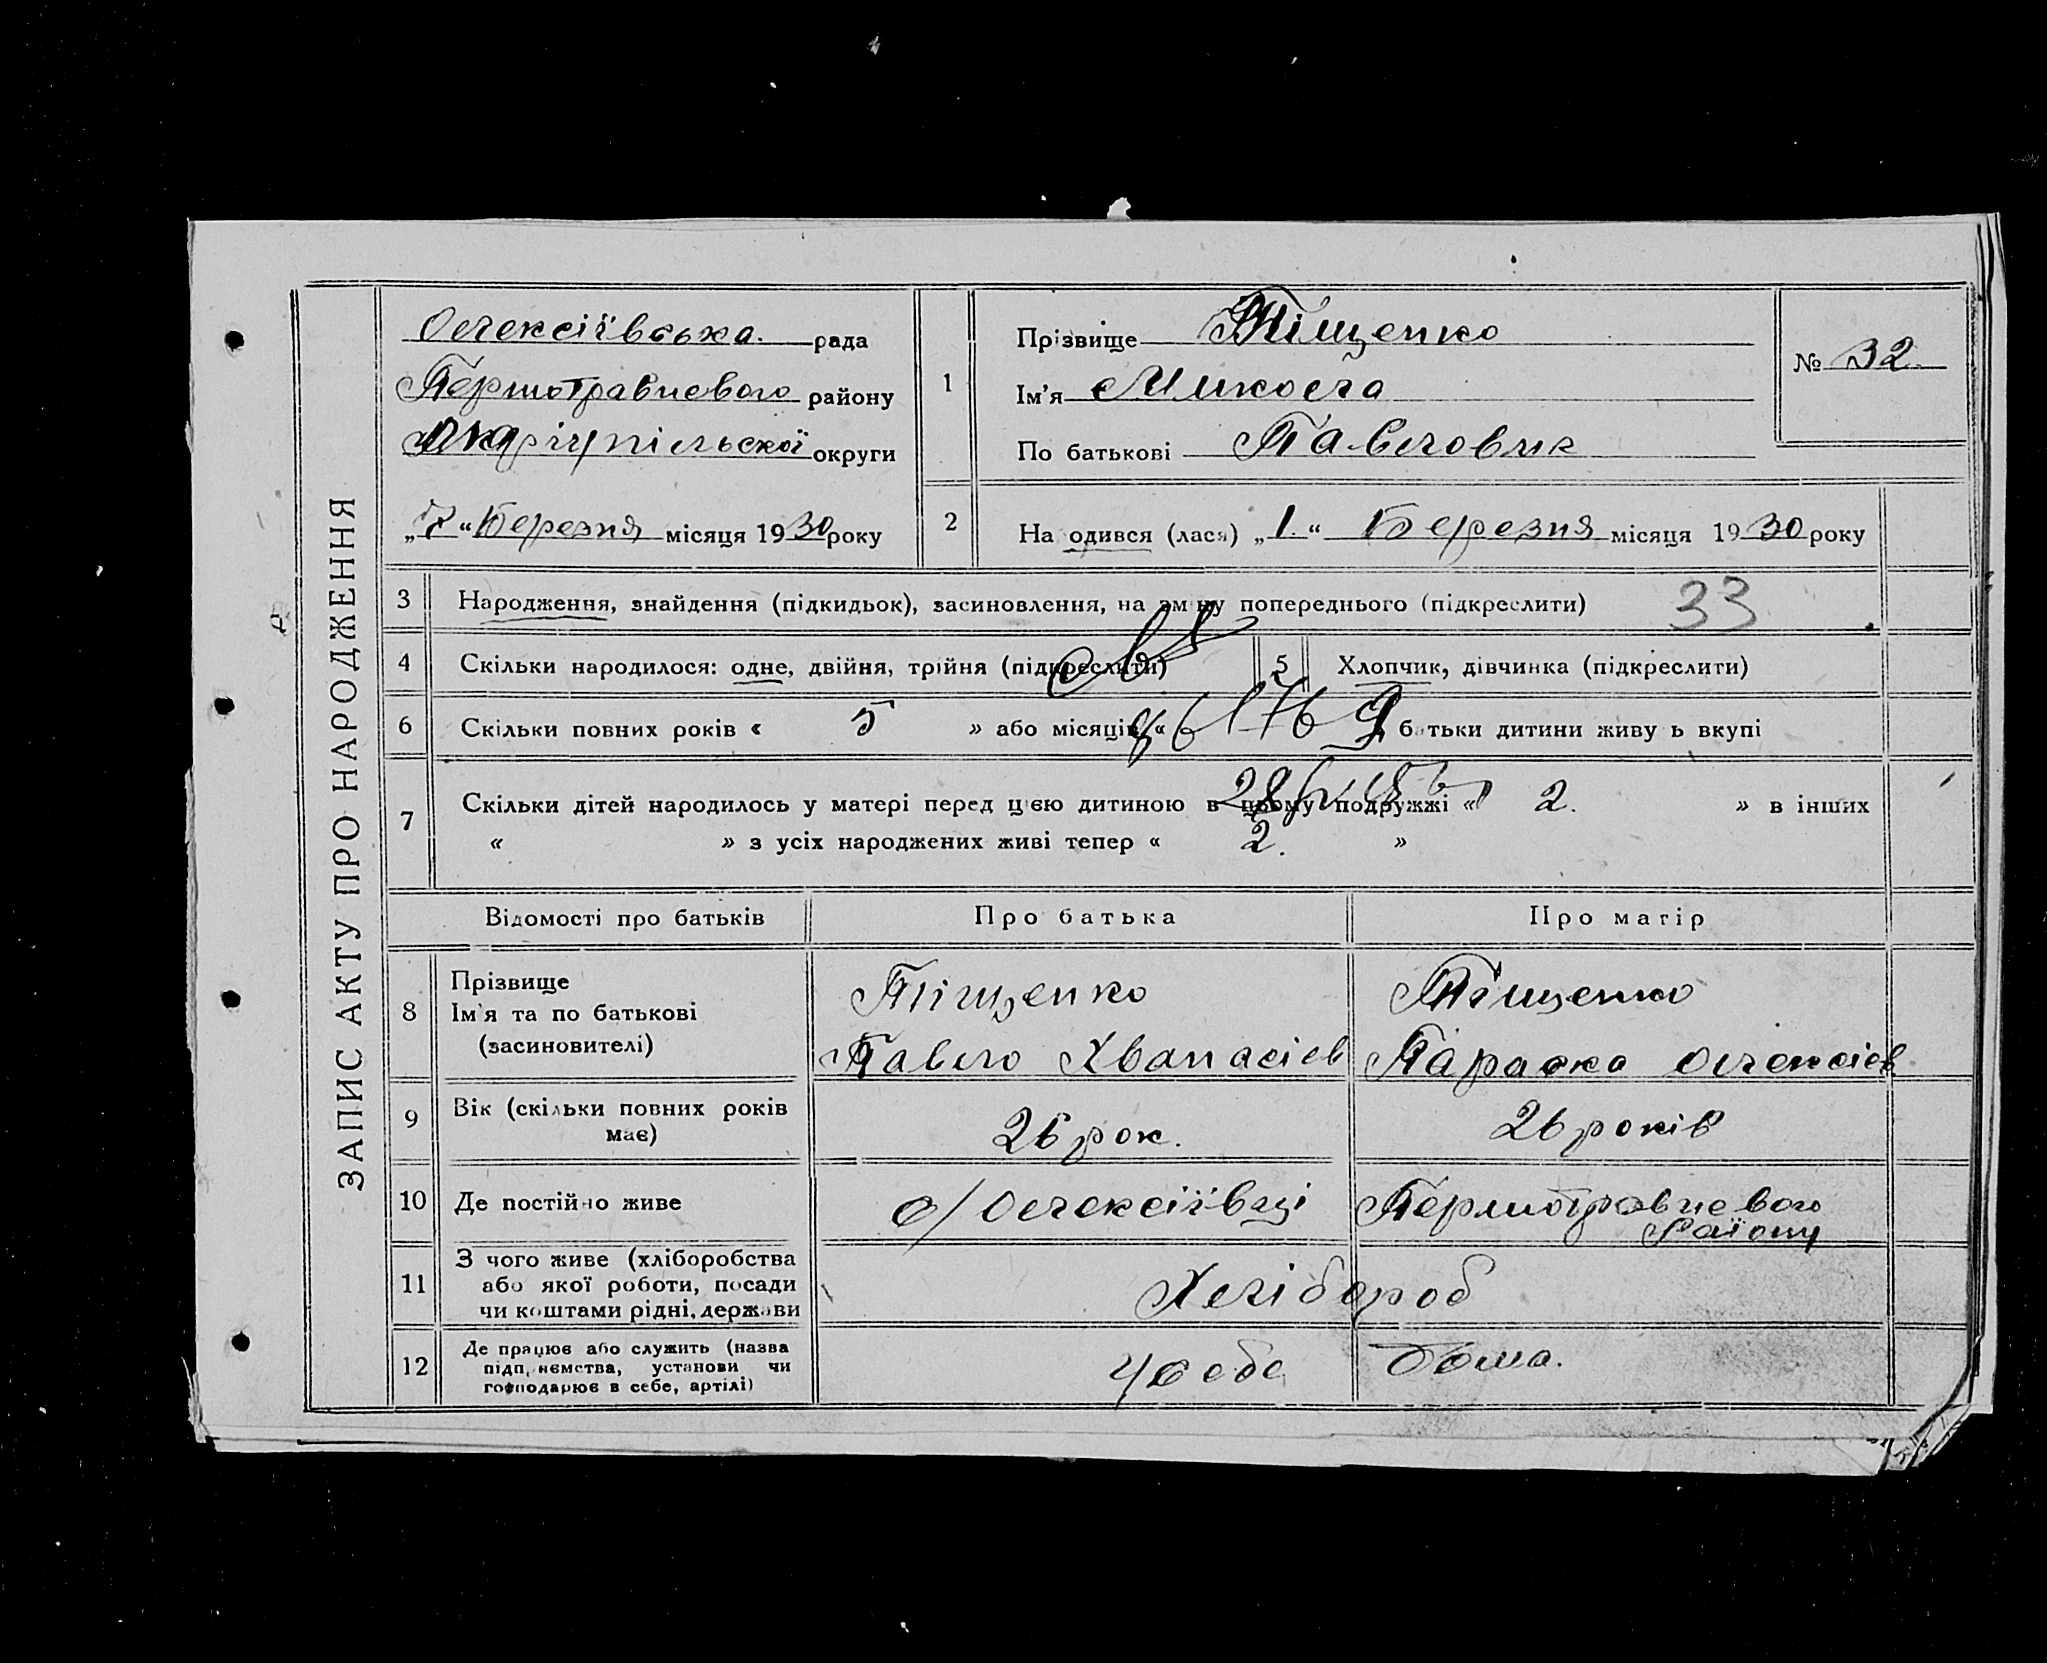 ЗАПИС АКТУ ПРО НАРОДЖЕННЯ
Олексіївська рада
Першотравневого району
Маріупільскої округи
„7“ Березня місяця 1930 року
1
Прізвище Тіщенко
Ім'я Микола
По батькові Павловик
№ 32
2
На одився (лася) „1.“ Березня місяця 1930 року
3 Народження, знайдення (підкидьок), засиновлення, на зміну попереднього (підкреслити) 33
4 Скільки народилося: одне, двійня, трійня (підкреслити)
5 Хлопчик, дівчинка (підкреслити)
6 Скільки повних років « 5 » або місяців « батьки дитини живу ь вкупі
7 Скільки дітей народилось у матері перед цією дитиною в цьому подружжі « 2. » в інших
« » з усіх народжених живі тепер « 2. »
Відомості про батьків Про батька Про матір
8 Прізвище
Ім'я та по батькові
(засиновителі)
Тіщенко
Павло Хванасіев
Тіщенко
Параска Олексіев
9 Вік (скільки повних років
має)
26 рок.
26 років
10 Де постійно живе
с/Олексіївці
Першотравневого
Району
11 З чого живе (хліборобства
або якої роботи, посади
чи коштами рідні, держави
Хлібороб
12 Де працює або служить (назва
підприємства, установи чи
господарює в себе, артілі)
У себе
дома.